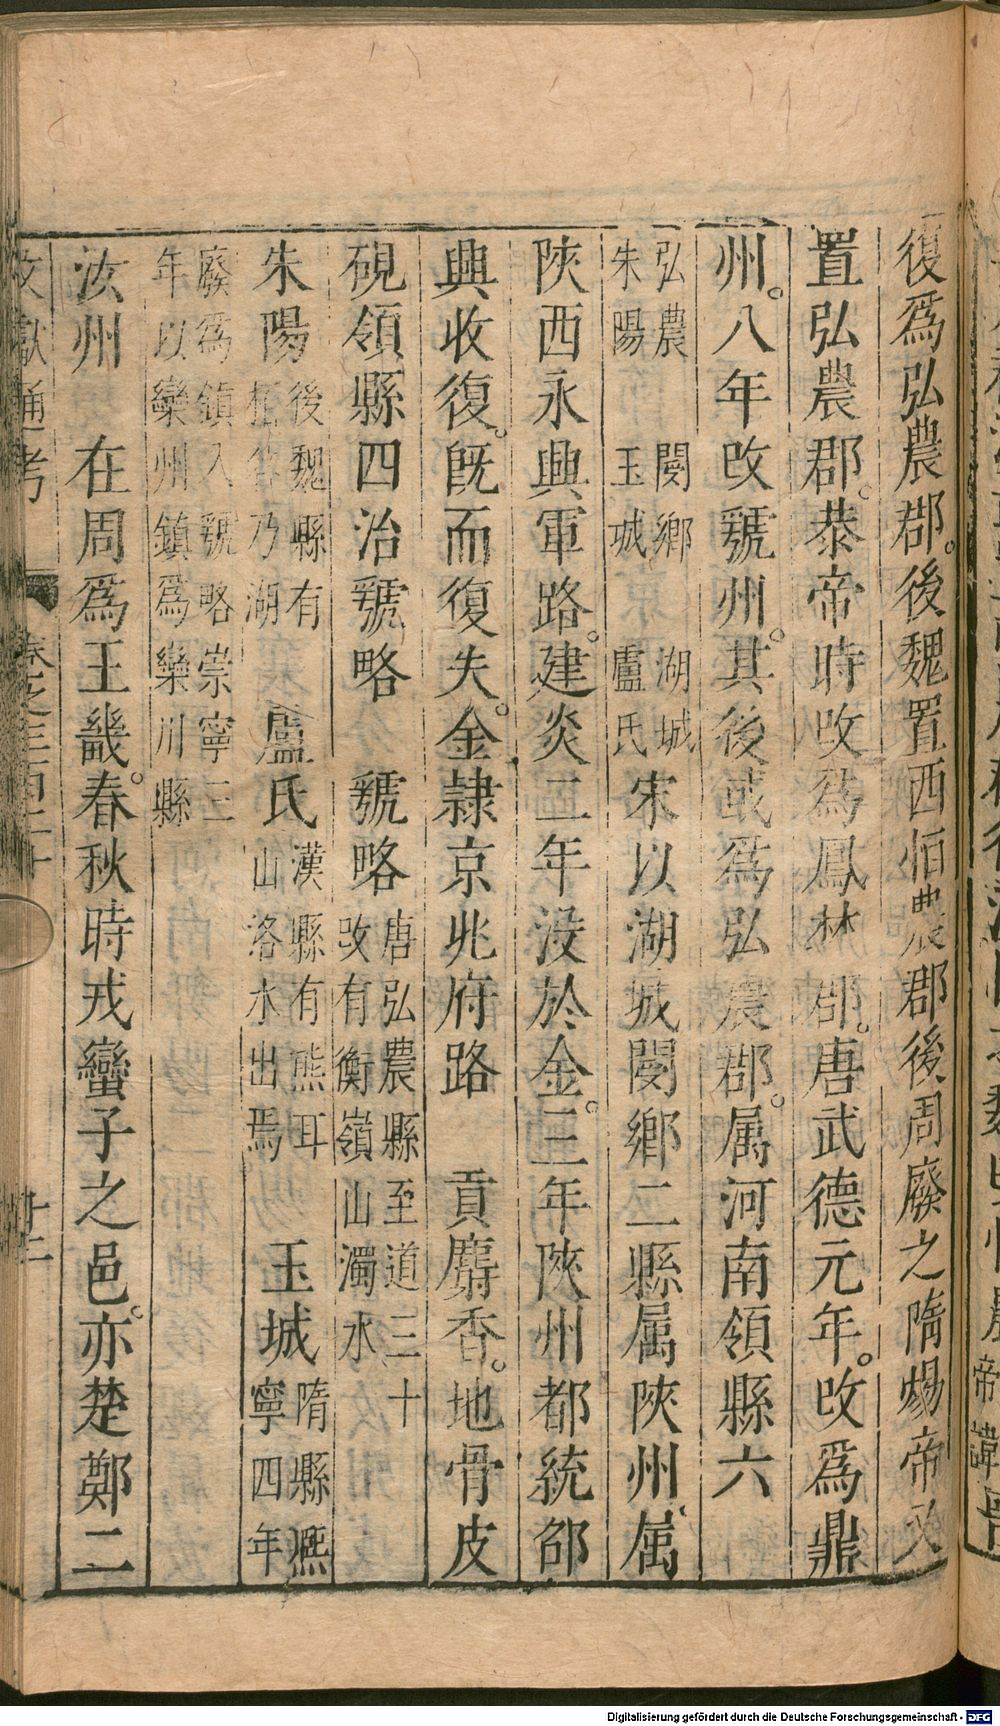 復為弘農郡。後魏置西恒農郡後周廢之隋煬帝又
置弘農郡。恭帝時改為鳳林郡。唐武德元年。改為鼎
州。八年改虢州。其後或為弘農郡。属河南領縣六
弘農　閿鄉　湖城
朱陽　玉城　盧氏
宋以湖城閿鄉二縣属陝州属
陝西永興軍路。建炎二年没於金。三年陝州都統邵
興收復。既而復失。金隷京兆府路　貢麝香。地骨皮
硯領縣四治虢略　虢略
唐弘農縣至道三十
改有衡嶺山濁水
朱陽
後魏縣有
乃湖
盧氏
漢縣有熊耳
山洛水出焉
玉城
隋縣熙
寧四年
廢為鎮入虢略崇寧三
年以欒州鎮為欒川縣
汝州　在周為王畿。春秋時戎蠻子之邑。亦楚鄭二
文獻通考
卷之三百二十
廿二
帝諱
Digitalisierung gefördert durch die Deutsche Forschungsgemeinschaft - DFG